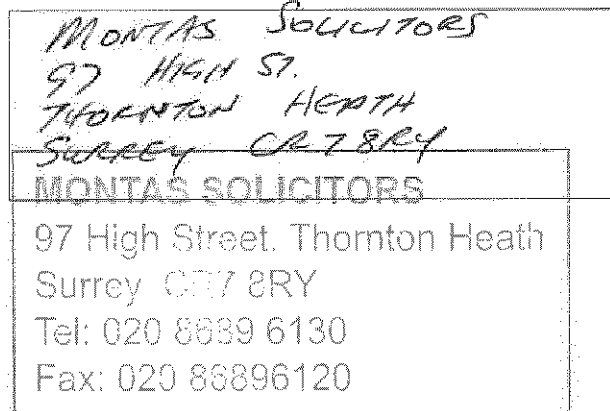 MONTAS SOLICITORS
97 HIGH ST.
THORNTON HEATH
SURREY CR7 8RY
MONTAS SOLICITORS
97 High Street. Thornton Heath
Surrey CR7 8RY
Tel: 020 8689 6130
Fax: 020 86896120